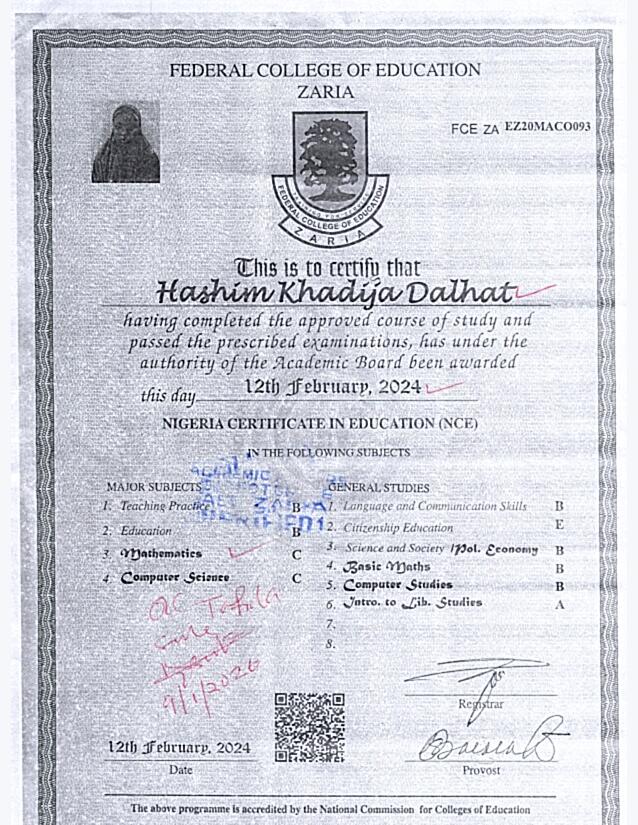 FEDERAL COLLEGE OF EDUCATION
ZARIA
FCE ZA EZ20MACO093
FEDERAL COLLEGE OF EDUCATION
ZARIA
This is to certify that
Hashim Khadija Dalhat
having completed the approved course of study and
passed the prescribed examinations, has under the
authority of the Academic Board been awarded
this day 12th February, 2024
NIGERIA CERTIFICATE IN EDUCATION (NCE)
IN THE FOLLOWING SUBJECTS
MAJOR SUBJECTS
1. Teaching Practice B
2. Education B
3. Mathematics C
4. Computer Science C
GENERAL STUDIES
1. Language and Communication Skills B
2. Citizenship Education E
3. Science and Society /Pol. Economy B
4. Basic Maths B
5. Computer Studies B
6. Intro. to Lib. Studies A
7.
8.
ACADEMIC
9/1/2026
Registrar
12th February, 2024
Date
Provost
The above programme is accredited by the National Commission for Colleges of Education